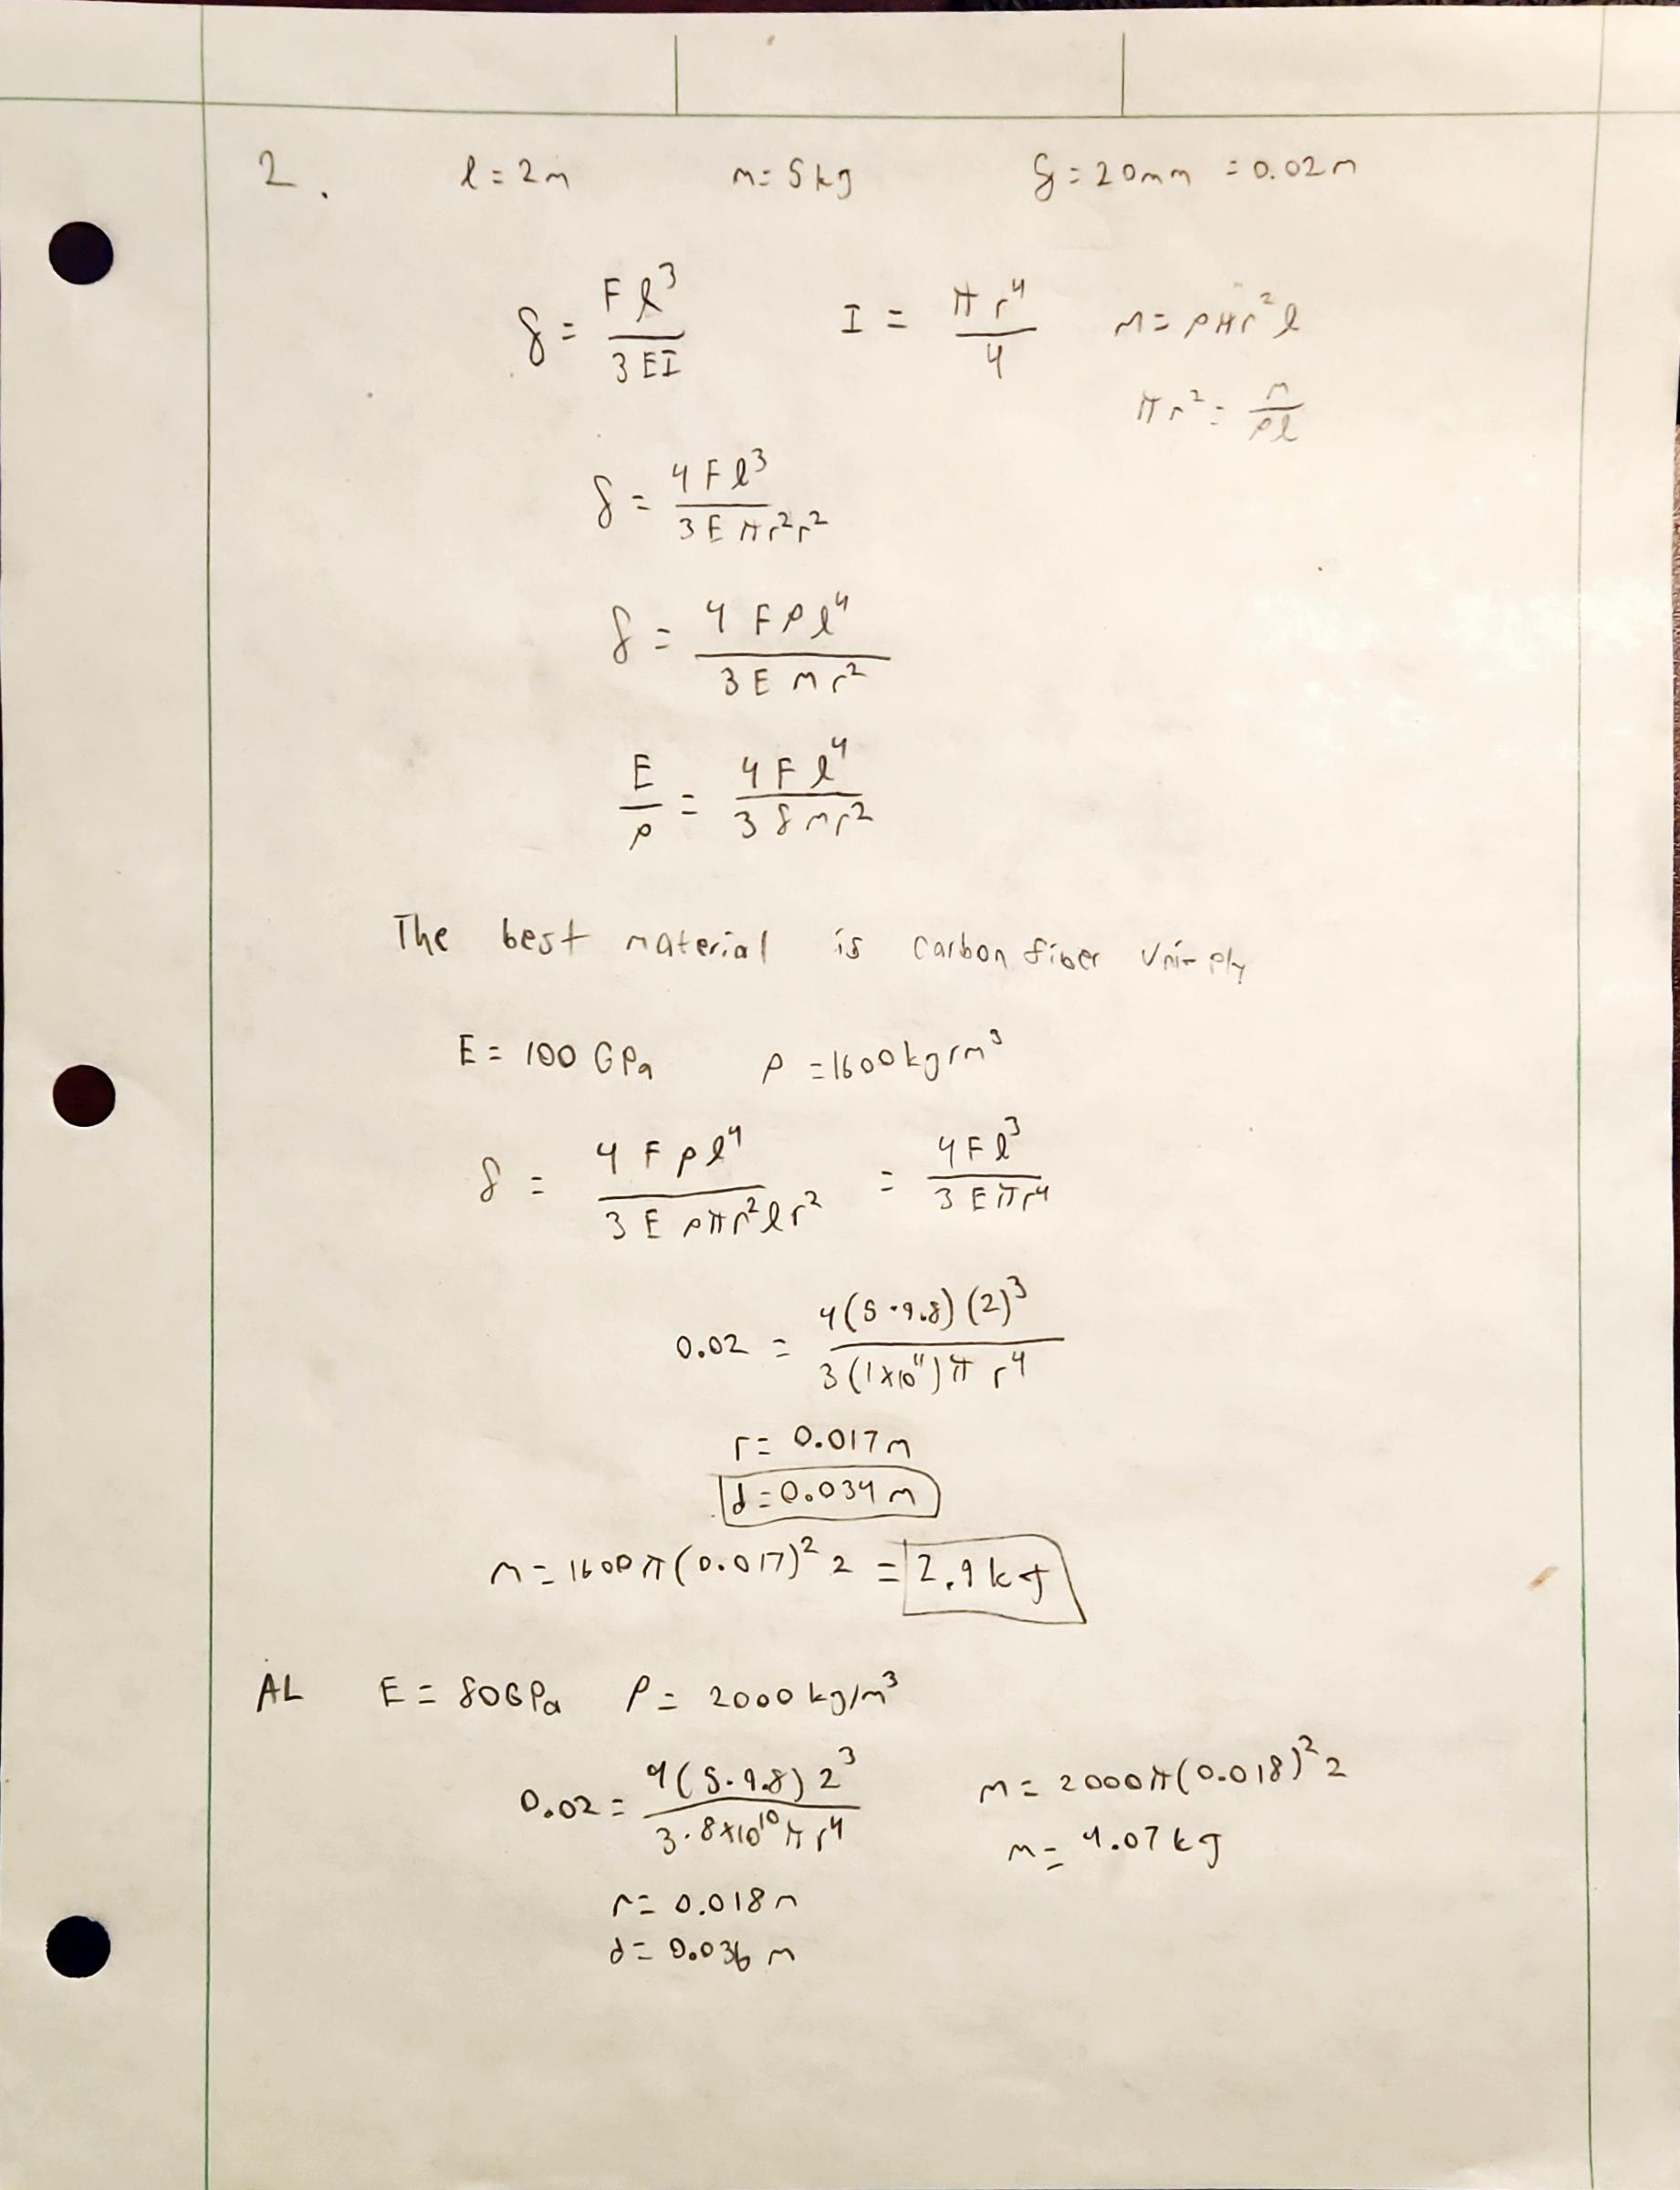 2. l = 2m m = 5kg δ = 20mm = 0.02m
δ = Fl³/3EI I = πr⁴/4 m = ρπr²l
πr² = m/ρl
δ = 4Fl³/3Eπr²r²
δ = 4Fρl⁴/3Emr²
E/ρ = 4Fl⁴/3δmr²
The best material is carbon fiber Uni-ply
E = 100 GPa ρ = 1600kg/m³
δ = 4Fρl⁴/3Eρπr²lr² = 4Fl³/3Eπr⁴
0.02 = 4(5·9.8)(2)³/3(1×10¹¹)πr⁴
r = 0.017m
d = 0.034m
m = 1600π(0.017)²2 = 2.9kg
AL E = 80GPa ρ = 2000kg/m³
0.02 = 4(5·9.8)2³/3·8×10¹⁰πr⁴ m = 2000π(0.018)²2
m = 4.07kg
r = 0.018m
d = 0.036m